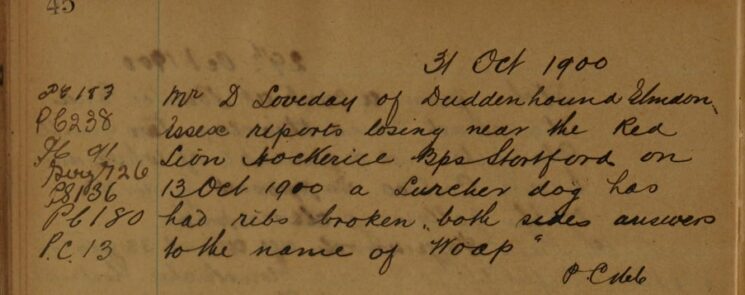 45
31 Oct 1900
PC 183
Mr D Loveday of Duddenhound Elmdon
PC 238
Essex reports losing near the Red
PC 91
Lion Hockerice Bps Stortford on
Serg 726
13 Oct 1900 a Lurcher dog has
PC 136
PC 180
had ribs broken, both sides answers
P.C. 13
to the name of "Woap"
P.C